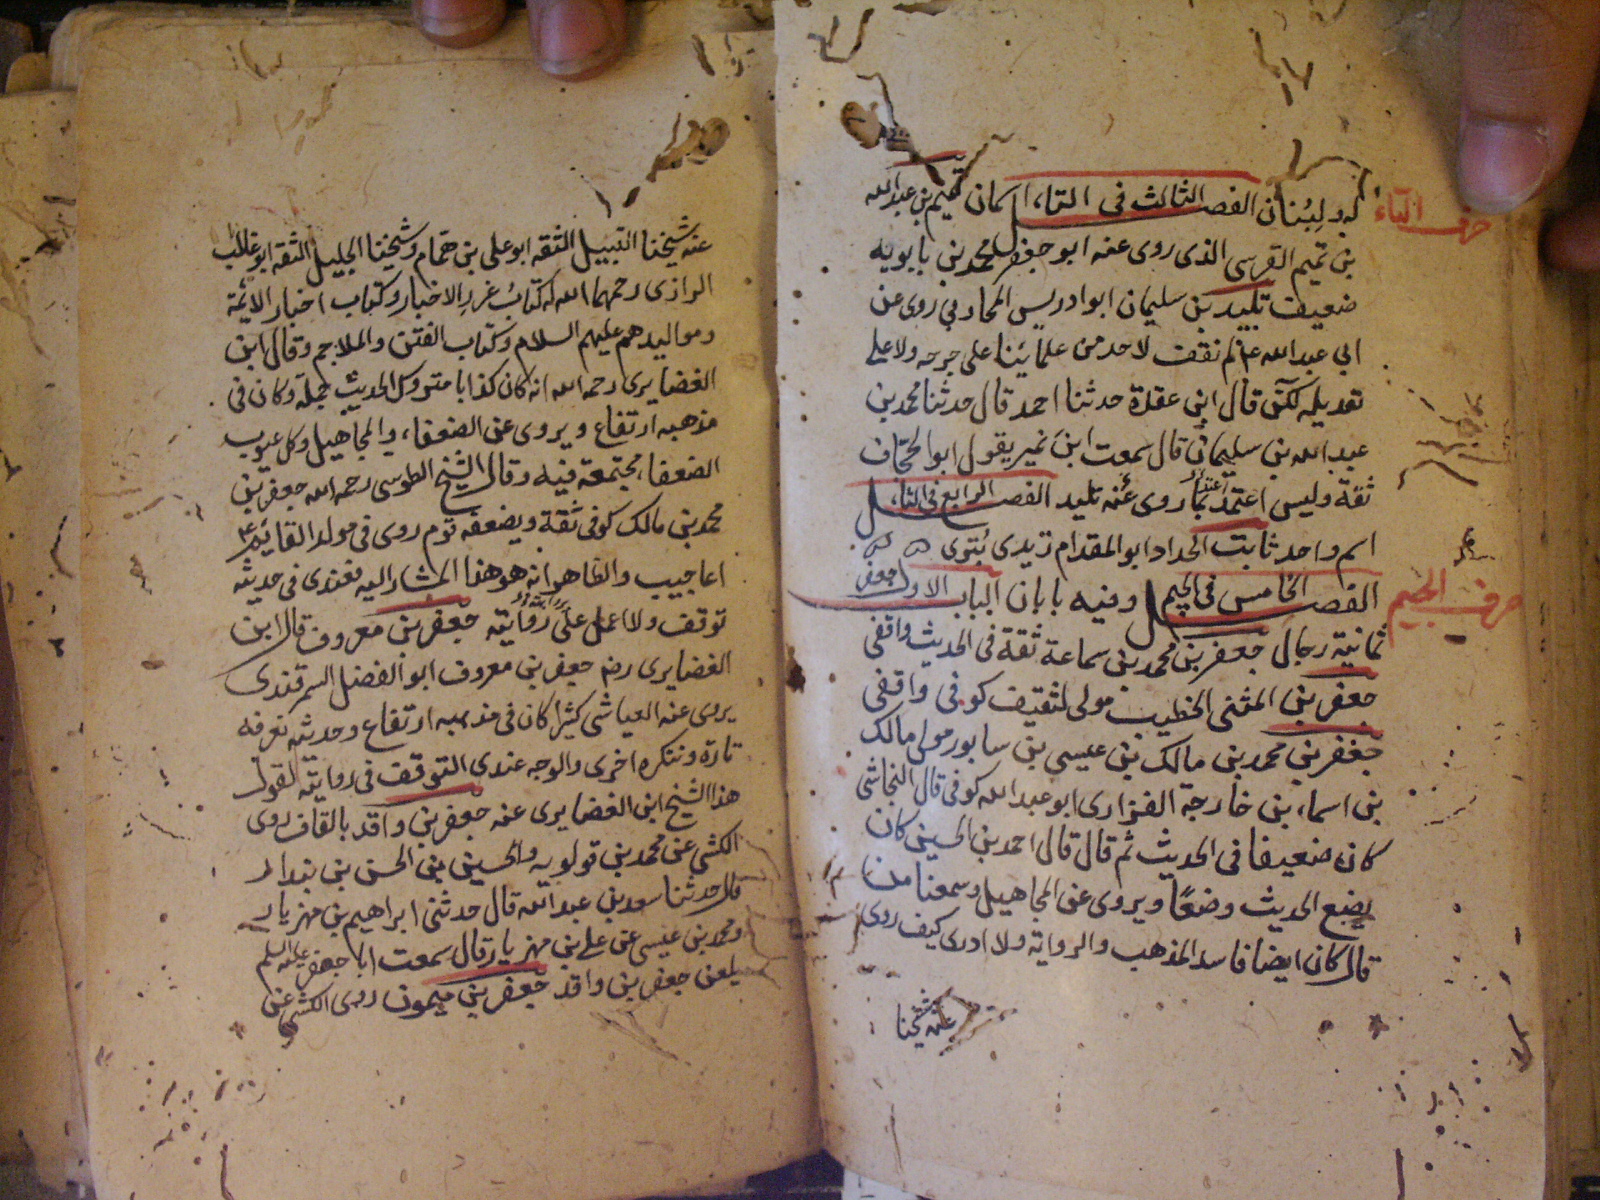 حرف التاء
له ولبنان الفصل الثالث في التاء اسمان تميم بن عبدالله
بن تميم القرسى الذى روى عنه ابو جعفر محمد بن بابويه
ضعيف تليد بن سليمان ابو ادريس المحاربي روى عن
ابي عبدالله ع لم نقف لاحد من علمائنا على جرحه ولا على
تعديله لكن قال ابن عقدة حدثنا احمد قال حدثنا محمد بن
عبدالله بن سليمان قال سمعت ابن نمير يقول ابو الحجاف
ثقة وليس اعتمد بما روى عنه تليد الفصل الرابع في الثاء
اسم واحد ثابت الحداد ابو المقدام زيدى بترى
حرف الجيم
الفصل الخامس في الجيم وفيه بابان الباب الاول جعفر
ثمانية رجال جعفر بن محمد بن سماعة ثقة في الحديث واقفى
جعفر بن المثنى الخطيب مولى لثقيف كوفى واقفى
جعفر بن محمد بن مالك بن عيسى بن سابور مولى مالك
بن اسماء بن خارجة الفزارى ابو عبدالله كوفى قال النجاشى
كان ضعيفا في الحديث ثم قال قال احمد بن الحسين كان
يضع الحديث وضعًا ويروى عن المجاهيل وسمعنا من
قال كان ايضا فاسد المذهب والرواية ولا ادرى كيف روى
عنه شيخنا
عنه شيخنا النبيل الثقه ابو على بن همام وشيخنا الجليل الثقه ابو غالب
الرازى رحمهما الله له كتاب غرر الاخبار وكتاب اخبار الائمة
ومواليدهم عليهم السلام وكتاب الفتن والملاحم وقال ابن
الغضايرى رحمه الله انه كان كذابا متروك الحديث جملة وكان في
مذهبه ارتفاع ويروى عن الضعفاء والمجاهيل وكل عيوب
الضعفاء مجتمعة فيه وقال الشيخ الطوسى رحمه الله جعفر بن
محمد بن مالك كوفى ثقة ويضعفه قوم روى في مولد القائم ع
اعاجيب والظاهر انه هو هذا المشار اليه فعندى في حديثه
توقف ولا اعمل على روايته جعفر بن معروف قال ابن
الغضايرى رضه جعفر بن معروف ابو الفضل السمرقندى
يروى عنه العياشى كثيرا كان في مذهبه ارتفاع وحديثه نعرفه
تارة وننكره اخرى والوجه عندى التوقف في روايته لقول
هذا الشيخ ابن الغضايرى عنه جعفر بن واقد بالقاف روى
الكشى عن محمد بن قولويه والحسين بن الحسن بن بندار
قال حدثنا سعد بن عبدالله قال حدثنى ابراهيم بن مهزيار
ومحمد بن عيسى عن على بن مهزيار قال سمعت ابا جعفر عليه السلم
يلعن جعفر بن واقد جعفر بن ميمون روى الكشى عن